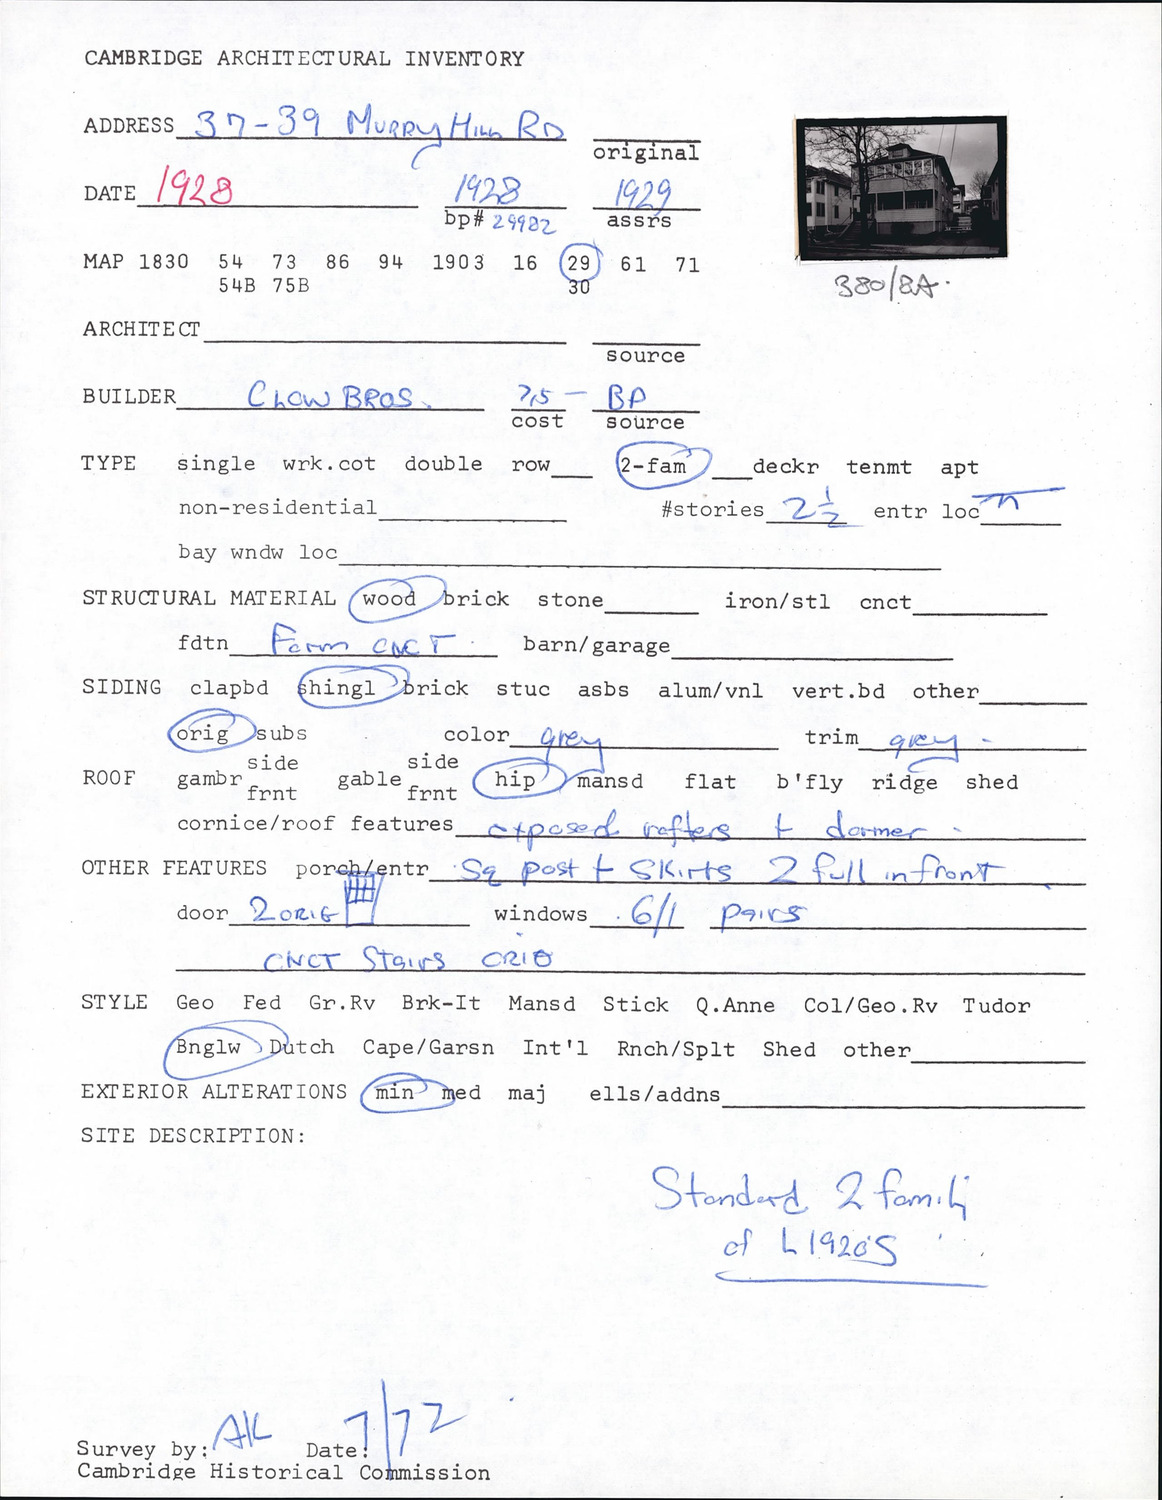 CAMBRIDGE ARCHITECTURAL INVENTORY
ADDRESS 37-39 MURRY HILL RD
original
DATE 1928 1928 1929
bp# 29982 assrs
MAP 1830 54 73 86 94 1903 16 29 61 71
54B 75B 30
380/8A.
ARCHITECT
source
BUILDER BROS. 7,5 — BP
cost source
TYPE single wrk.cot double row 2-fam deckr tenmt apt
non-residential #stories 2 1/2 entr loc
bay wndw loc
STRUCTURAL MATERIAL wood brick stone iron/stl cnct
fdtn CNCT barn/garage
SIDING clapbd shingl brick stuc asbs alum/vnl vert.bd other
orig subs color grey trim grey
side side
ROOF gambr gable hip mansd flat b'fly ridge shed
frnt frnt
cornice/roof features exposed rafters + dormer
OTHER FEATURES porch/entr Sq post + SKirts 2 full in front
door 2 ORIG windows 6/1 pairs
CNCT Stairs ORIG
STYLE Geo Fed Gr.Rv Brk-It Mansd Stick Q.Anne Col/Geo.Rv Tudor
Bnglw Dutch Cape/Garsn Int'l Rnch/Splt Shed other
EXTERIOR ALTERATIONS min med maj ells/addns
SITE DESCRIPTION:
Standard 2 family
of L 1920S
Survey by: AK Date: 7/72
Cambridge Historical Commission